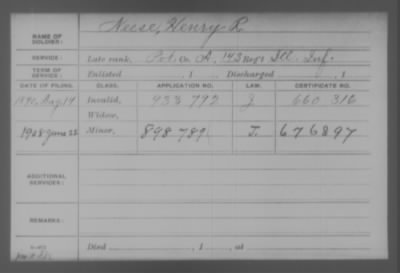 NAME OF SOLDIER: Reese, Henry R
SERVICE: Late rank, Pvt. Co. A, 143 Reg't Ill. Inf.
TERM OF SERVICE: Enlisted , 1 Discharged , 1
DATE OF FILING. CLASS. APPLICATION NO. LAW. CERTIFICATE NO.
1890, Aug 14 Invalid, 933 792 J 660 316
Widow,
1908 June 22 Minor, 898 789 J. 676897
ADDITIONAL SERVICES:
REMARKS:
Died , 1 , at